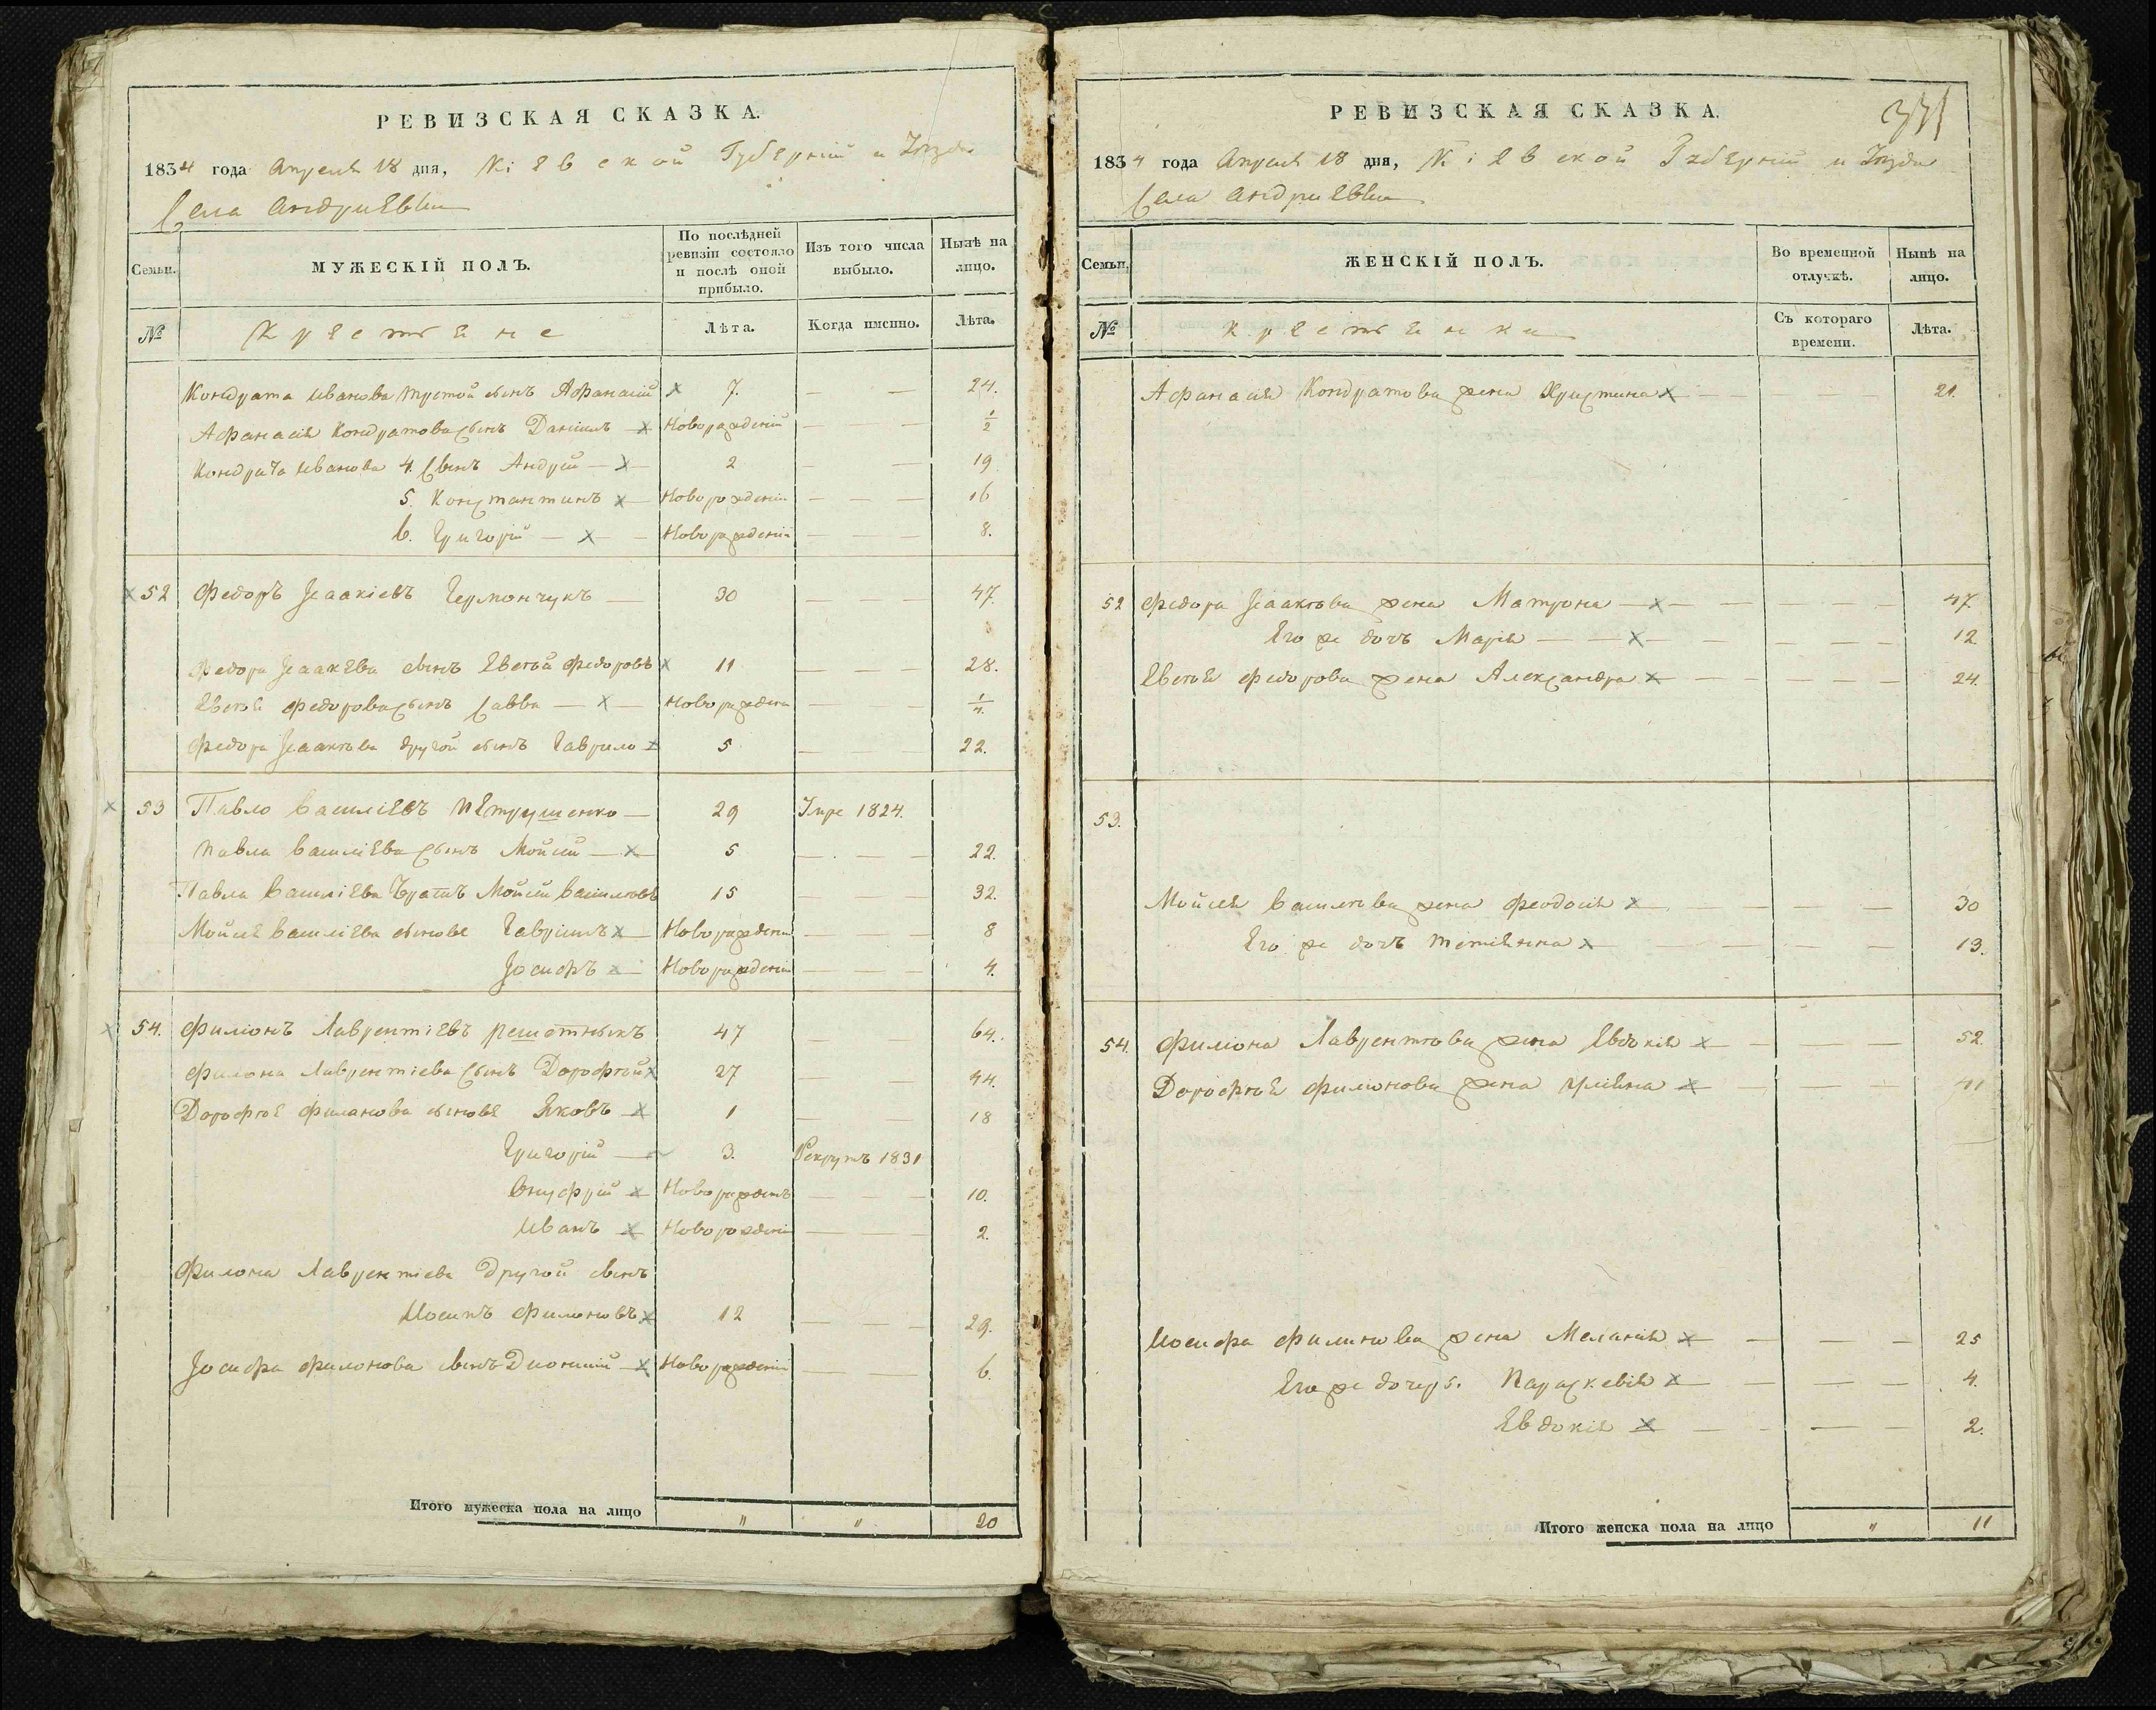 РЕВИЗСКАЯ СКАЗКА.
1834 года Апреля 18 дня, Кіевской Губерніи и Уезда
Села Андриевки
Семьи.
МУЖЕСКІЙ ПОЛЪ.
По послѣдней ревизіи состояло и послѣ оной прибыло.
Изъ того числа выбыло.
Нынѣ на лицо.
№
Крестяне
Лѣта.
Когда именно.
Лѣта.
Кондрата Иванова третой сынъ Афанасій × 7. — — 24.
Афанасія Кондратова сынъ Даніилъ — × Новорожденій — — — 1/2
Кондрата Иванова 4. Сынъ Андрій — × — 2 — 19
5. Константинъ × Новорожденій — — — 16
6. Григорій — × — Новорожденій — — — 8.
× 52 Федоръ Исаакіевъ — 30 — — — 47.
Федора Исаакева сынъ Евсей Федоровъ × 11 — — — 28.
Евсея Федорова сынъ Савва — × — Новорожденій — — —
Федора Исаакова другой сынъ Гаврило × 5 — — 22.
× 53 Павло Василіевъ Петрушенко — 29 Умре 1824.
Павла Василіева сынъ Мойсій — × 5 — — — 22.
Павла Василіева Братъ Мойсій Василіовъ 15 — — — 32.
Мойсея Василіева сынове Гавріилъ × Новорожденій — — — 8
Іосифъ × — Новорожденій — — — 4.
× 54. Филіонъ Лаврентіевъ Решетныкъ 47 — — 64.
Филона Лаврентіева сынъ Дорофтей × 27 — — 44.
Дорофтея Филанова сынове Яковъ — × 1 — — 18
Григорій — 3. Рекрутъ 1831
Онуфрій × Новорожденъ — — — 10.
Иванъ × Новорожденій — — — 2.
Филона Лаврентіева Другой сынъ
Иосипъ Филоновъ × 12 — — — 29.
Іосифа Филонова сынъ Дионисій — × Новорожденій — — 6.
Итого мужеска пола на лицо " " 20
РЕВИЗСКАЯ СКАЗКА.
331
1834 года Апреля 18 дня, Кіевской Губерніи и Уезда
Села Андриевки
Семьи.
ЖЕНСКІЙ ПОЛЪ.
Во временной отлучкѣ.
Нынѣ на лицо.
№
Крестянки
Съ котораго времени.
Лѣта.
Афанасія Кондратова жена Христина × — — — — 21.
52 Федора Исаакова жена Матрона — × — — — — 47.
Его же дочъ Марія — — × — — — — 12
Евсея Федорова жена Александра × — — — — 24.
53.
Мойсея Василова жена Феодосія × — — — — 30
Его же дочъ Тетіянна × — — — — 13.
54. Филіона Лаврентова жена Евдокія × — — — — 52.
Дорофтея Филіонова жена × — — — 41
Иосифа Филинова жена Меланія × — — — — 25
Его же дочеръ. Параскевія × — — — — 4.
Евдокія × — — — — 2.
Итого женска пола на лицо " 11